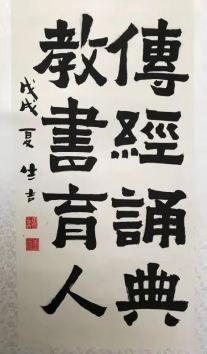 傳經誦典
教書育人
戊戌夏